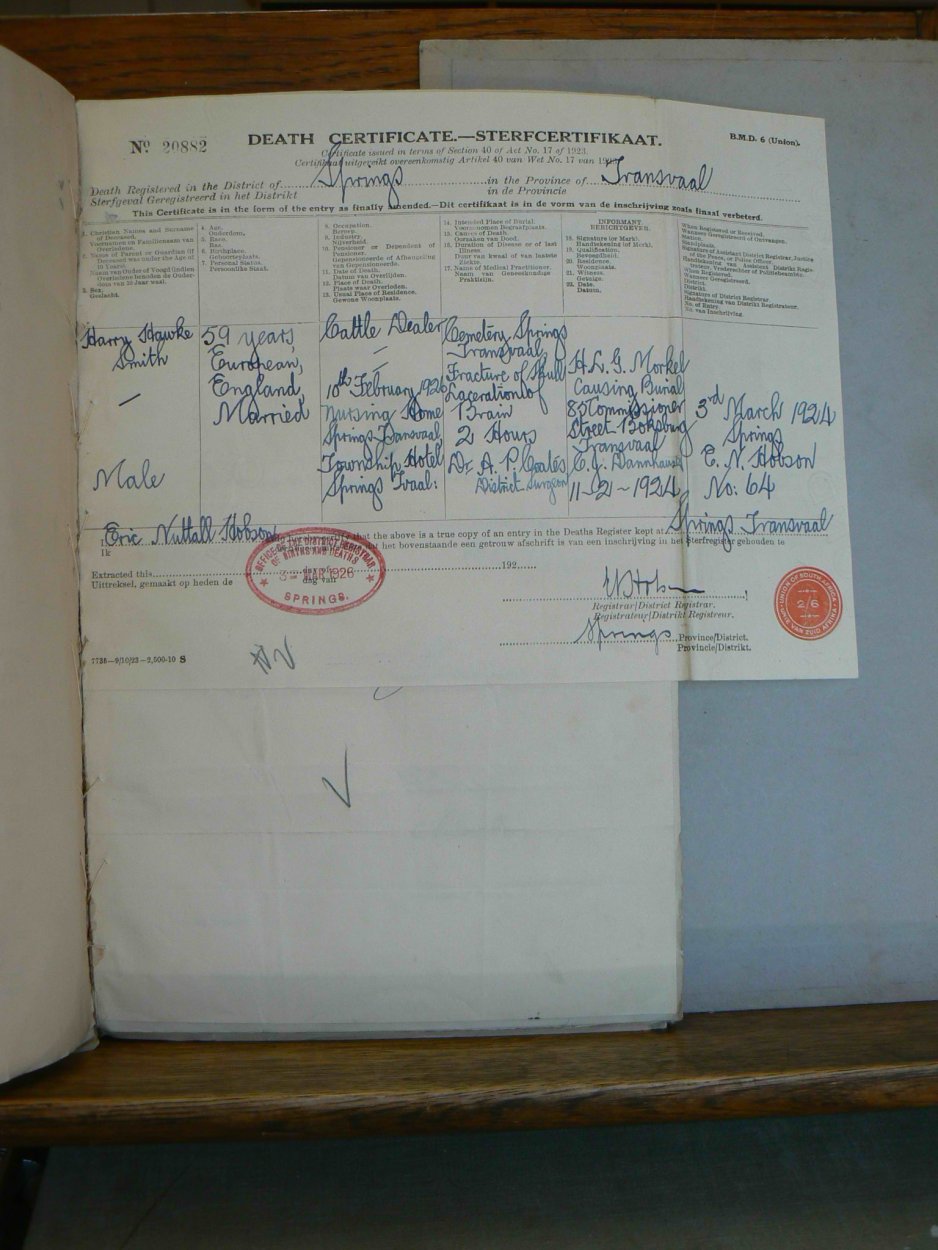 No 20882
DEATH CERTIFICATE.—STERFCERTIFIKAAT.
B.M.D. 6 (Union).
Certificate issued in terms of Section 40 of Act No. 17 of 1923.
Certifikaat uitgereikt overeenkomstig Artikel 40 van Wet No. 17 van
Death Registered in the District of Springs in the Province of Transvaal
Sterfgeval Geregistreerd in het Distrikt in de Provincie
This Certificate is in the form of the entry as finally amended.—Dit certifikaat is in de vorm van de inschrijving zoals finaal verbeterd.
1. Christian Names and Surname
of Deceased.
Voornamen en Familienaam van
Overledene.
2. Name of Parent or Guardian (if
Deceased was under the Age of
10 Years).
Naam van Ouder of Voogd (indien
Overledene beneden de Ouder-
dom van 10 Jaar was).
3. Sex.
Geslacht.
4. Age.
Ouderdom.
5. Race.
Ras.
6. Birthplace.
Geboorteplaats.
7. Personal Status.
Persoonlike Staat.
8. Occupation.
Beroep.
9. Industry.
Nijverheid.
10. Pensioner or Dependent of
Pensioner.
Gepensioneerde of Afhankeling
van Gepensioneerde.
11. Date of Death.
Datum van Overlijden.
12. Place of Death.
Plaats waar Overleden.
13. Usual Place of Residence.
Gewone Woonplaats.
14. Intended Place of Burial.
Voorgenomen Begraafplaats.
15. Causes of Death.
Oorzaken van Dood.
16. Duration of Disease or of last
Illness.
Duur van kwaal of van laatste
Ziekte.
17. Name of Medical Practitioner.
Naam van Geneeskundige
Praktisijn.
INFORMANT
BERICHTGEVER.
18. Signature (or Mark).
Handtekening (of Merk).
19. Qualification.
Bevoegdheid.
20. Residence.
Woonplaats.
21. Witness.
Getuige.
22. Date.
Datum.
When Registered or Received.
Wanneer Geregistreerd of Ontvangen.
Station.
Standplaats.
Signature of Assistant District Registrar, Justice
of the Peace, or Police Officer.
When Registered.
Wanneer Geregistreerd.
District.
Distrikt.
Signature of District Registrar.
Handtekening van Distrikt Registrateur.
No. of Entry.
No. van Inschrijving.
Harry Hawke
Smith
—
Male
59 years,
European,
England,
Married
Cattle Dealer
—
—
10th February 1926
Nursing Home
Springs Transvaal,
Township Hotel
Springs Tvaal:
Cemetery Springs
Transvaal,
Fracture of Skull
Laceration of
Brain
2 Hours
Dr A. P. Coates
District Surgeon
H.L.G. Morkel
Causing Burial
85 Commissioner
Street Boksburg
Transvaal
11-2-1924
3rd March 1924
Springs
E. N. Hobson
No: 64
I Eric Nuttall Hobson that the above is a true copy of an entry in the Deaths Register kept at Springs Transvaal
Ik het bovenstaande een getrouw afschrift is van een inschrijving in het Sterfregister gehouden te
Extracted this day of 192
Uittreksel, gemaakt op heden de dag van
OFFICE OF THE DISTRICT REGISTRAR
OF BIRTHS AND DEATHS
3 MAR 1926
SPRINGS.
Registrar/District Registrar.
Registrateur/Distrikt Registreur.
Springs Province/District.
Provincie/Distrikt.
UNION OF SOUTH AFRICA
2/6
UNIE VAN ZUID AFRIKA
7736—9/10/23—2,500-10 S